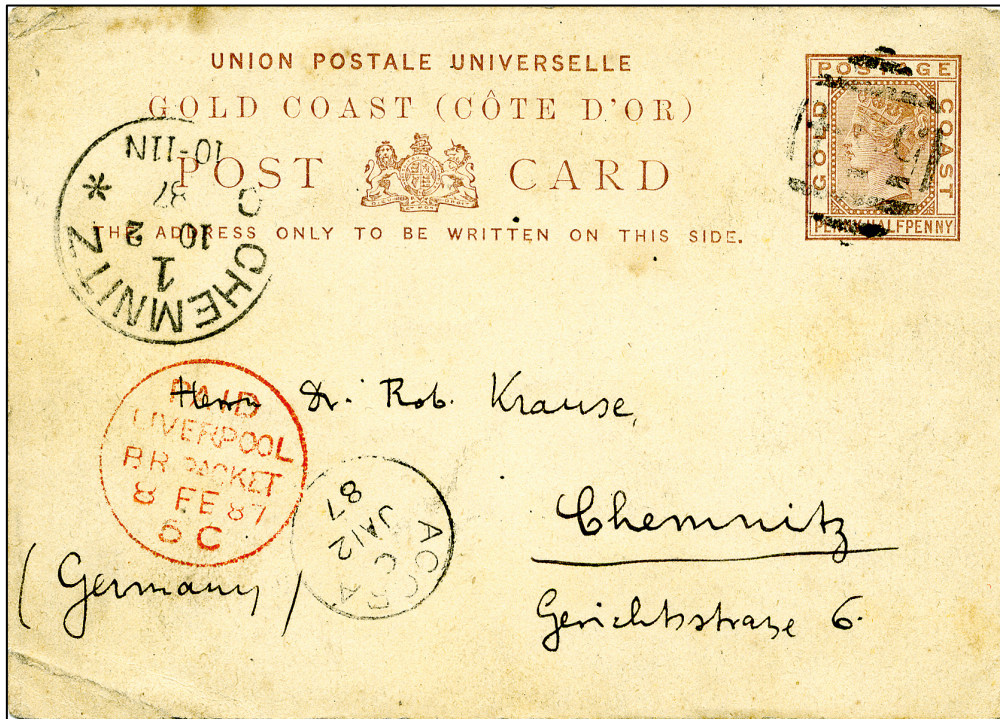 UNION POSTALE UNIVERSELLE
GOLD COAST (CÔTE D'OR)
POST CARD
THE ADDRESS ONLY TO BE WRITTEN ON THIS SIDE.
POSTAGE
GOLD
COAST
PENNY HALFPENNY
CHEMNITZ
1
10 2
87
10-11N
C
*
PAID
LIVERPOOL
BR PACKET
8 FE 87
5 C
ACCRA
C
JA 12
87
Herrn Dr. Rob. Krause,
Chemnitz
Gerichtsstrasse 6.
(Germany)